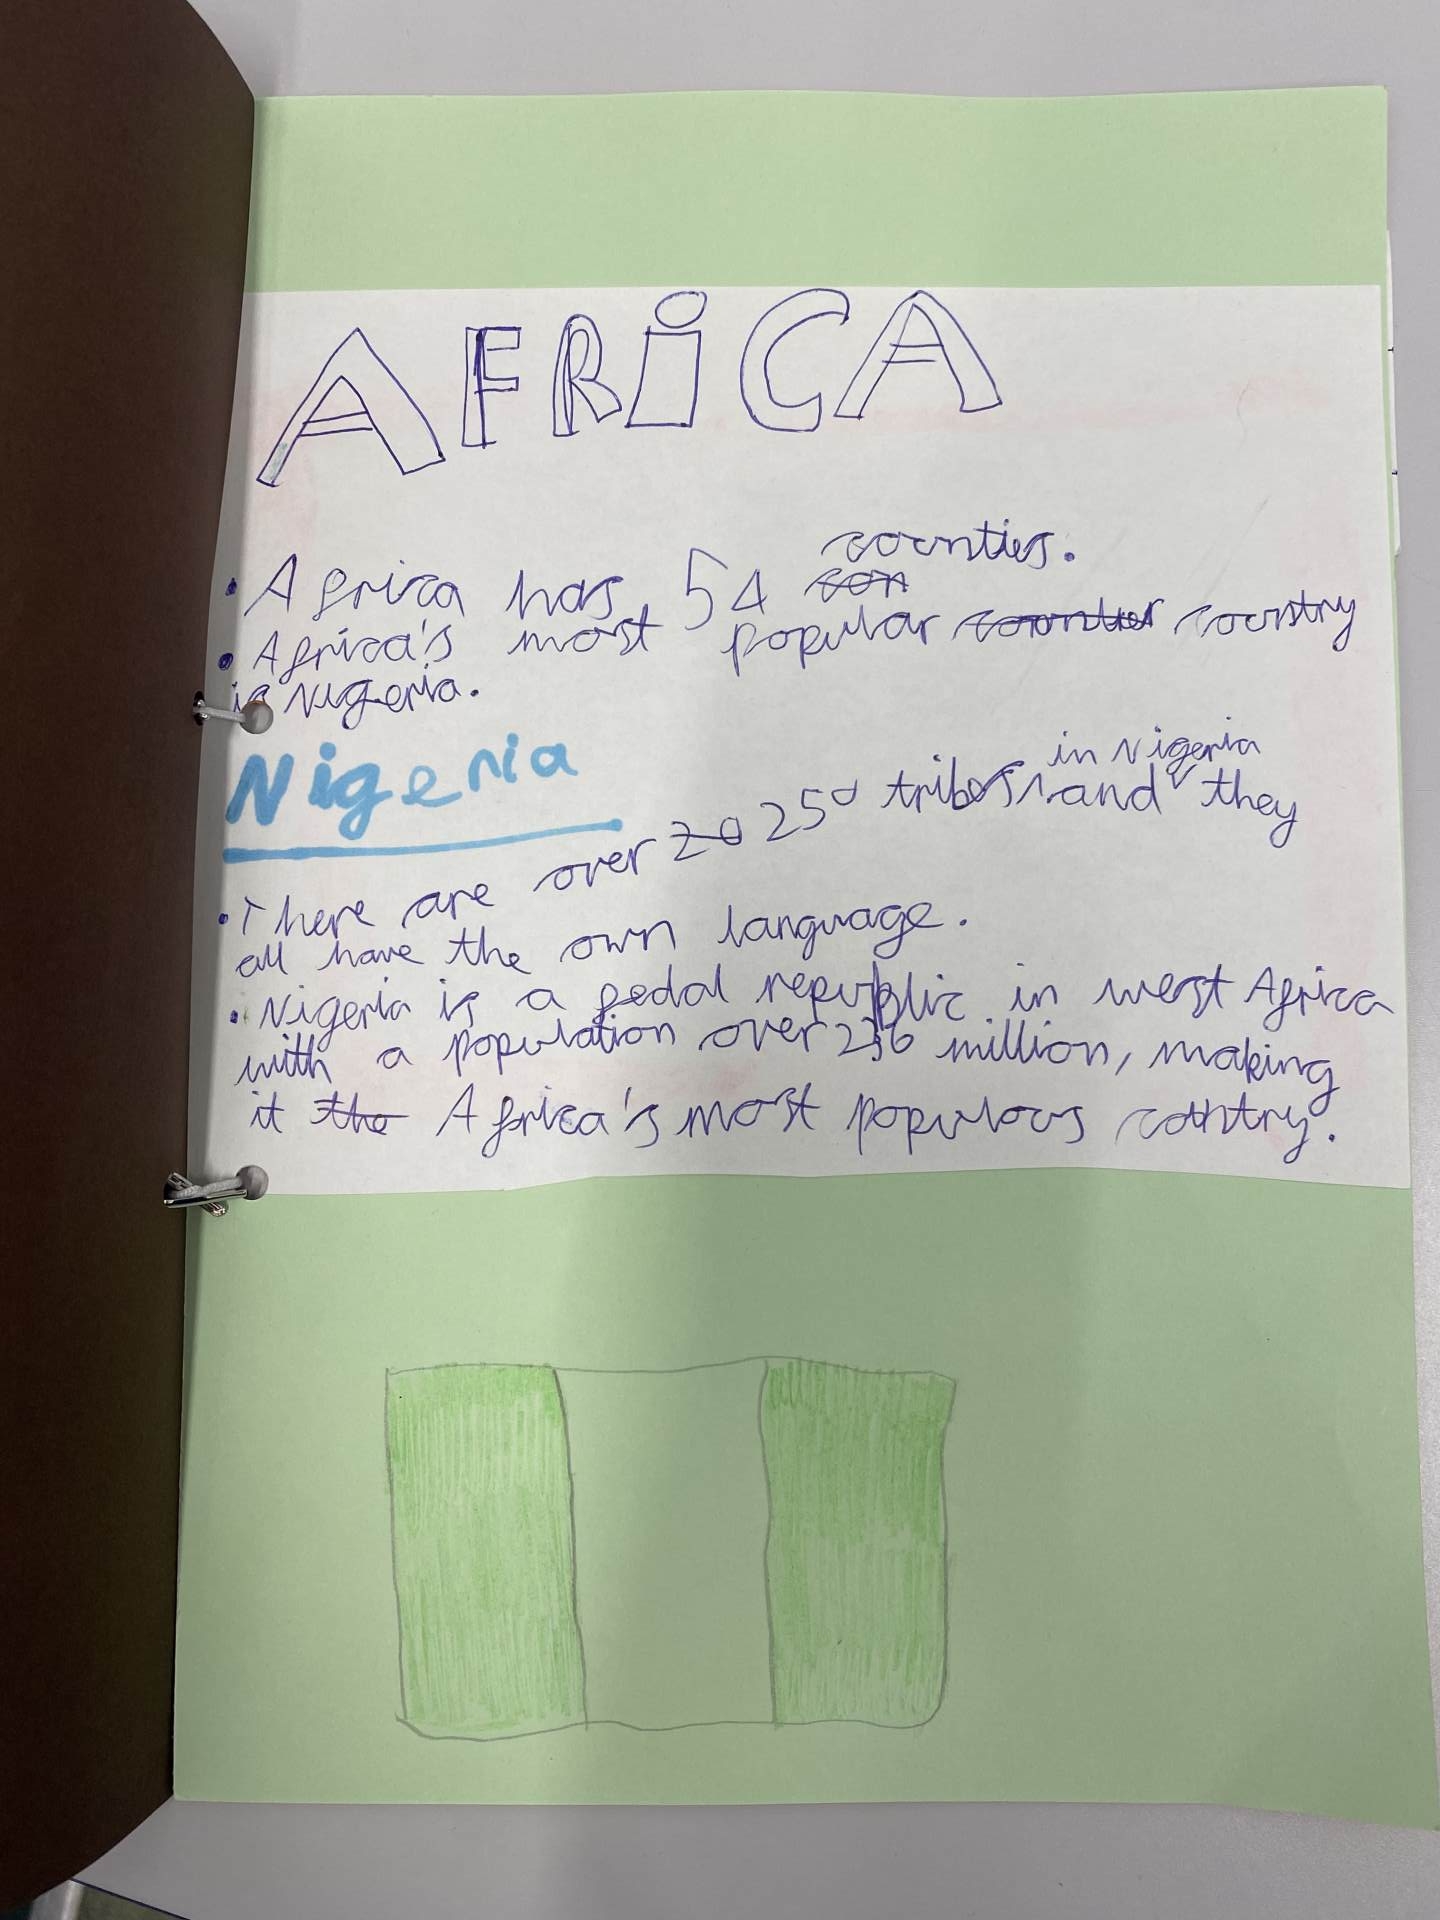 AFRiCA
counties.
• Africa has 54 con
• Africa's most popular counties country
is Nigeria.
Nigeria
in Nigeria
• There are over 20 250 tribes and they
all have the own language.
• Nigeria is a fedal republic in west Africa
with a population over 236 million, making
it the Africa's most populous country.